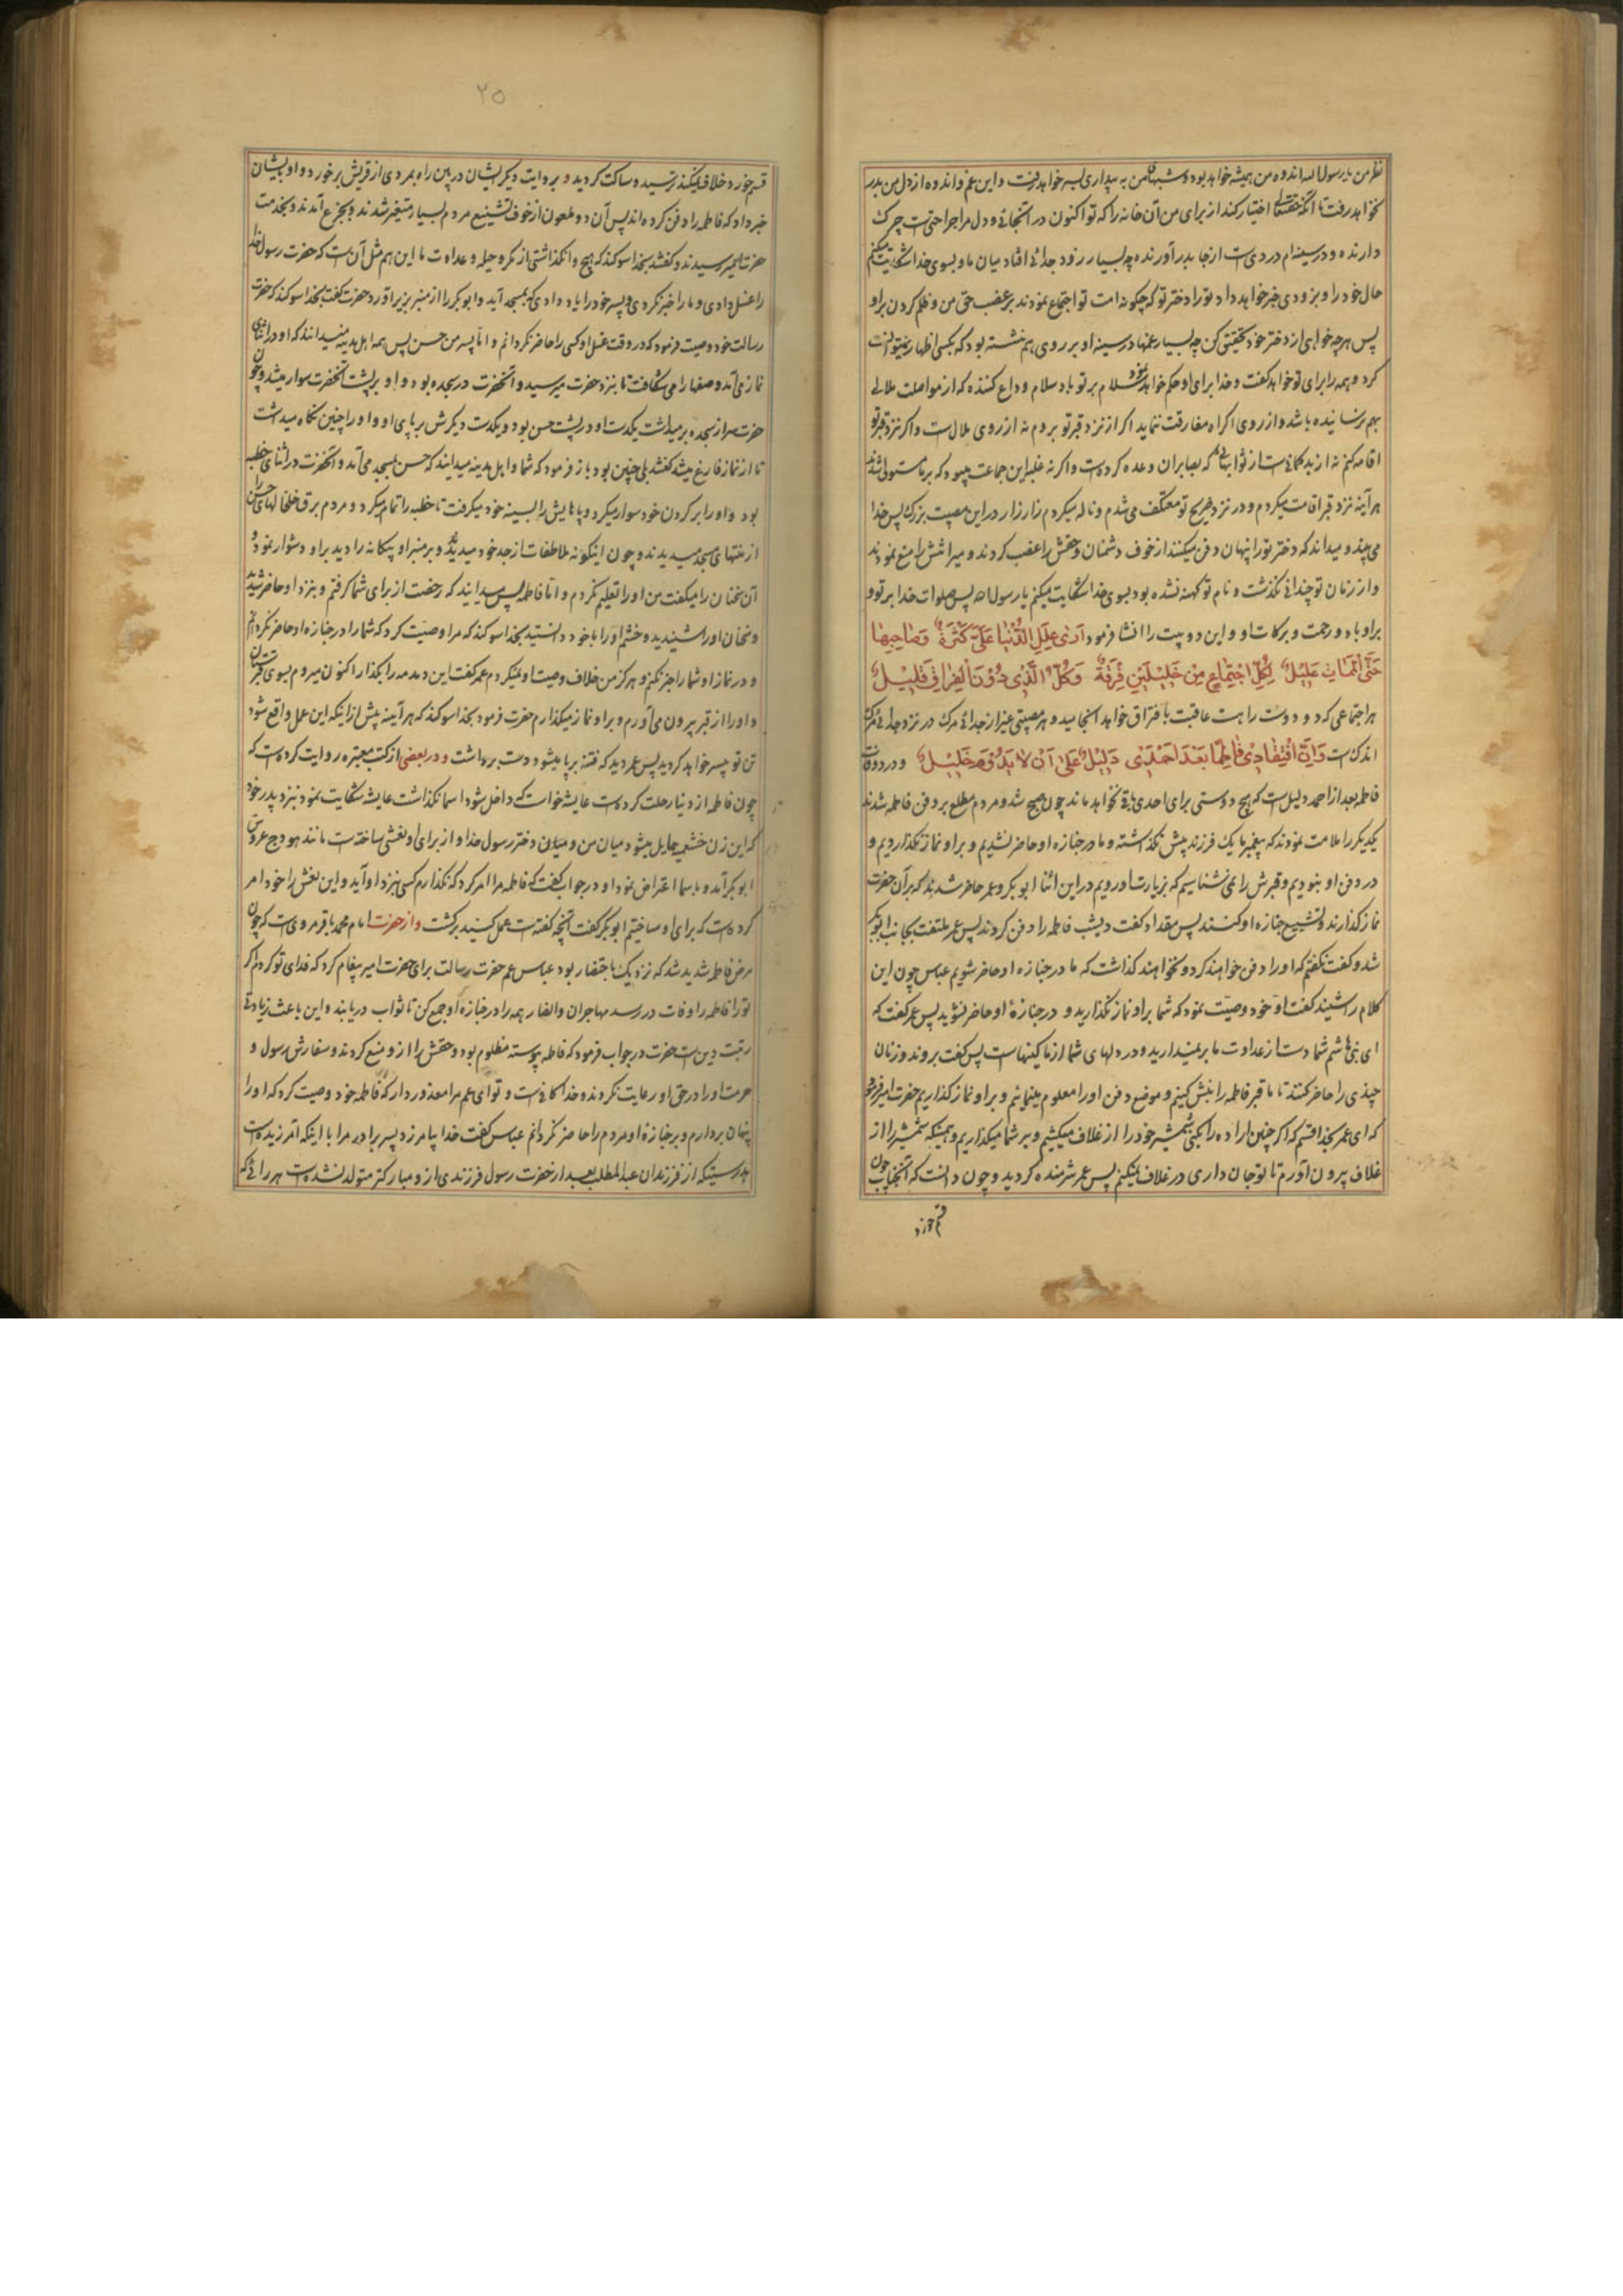 نظر من یا رسول الله اندوه من همیشه خواهد بود و شبهای من به بیداری بسر خواهد رفت و این غم و اندوه از دل من بدر
نخواهد رفت تا آنکه حقتعالی اختیار کند از برای من آن خانه را که تو اکنون در آنجائی و در دل مرا جراحتی است چرک
دارنده و در سینه‌ام دردی است از جا بدر آورنده چه بسیار زود جدائی افتاد میان ما و بسوی خدا شکایت میکنم
حال خود را و بزودی خبر خواهد داد تو را دختر تو که چگونه امت تو اجتماع نمودند بر غصب حق من و ظلم کردن بر او
پس هر چه خواهی از دختر خود تحقیق کن چه بسیار غمها در سینه او بر روی هم نشسته بود که بکسی اظهار نمیتوانست
کرد و همه را برای تو خواهد گفت و خدا برای او حکم خواهد نمود سلام بر تو باد سلام وداع کننده که از مواصلت ملالی
بهم نرسانیده باشد و از روی اکراه مفارقت ننماید اگر از نزد قبر تو بروم نه از روی ملال است و اگر نزد قبر تو
اقامه کنم نه از بد گمانیست از ثوابهائی که بصابران وعده کرده است و اگر نه غلبه این جماعت میبود که بر ما مستولی شدند
هر آینه نزد قبر اقامت میکردم و در نزد ضریح تو معتکف می‌شدم و ناله میکردم زار زار در این مصیبت بزرک پس خدا
می‌بیند و میداند که دختر تو را پنهان دفن میکنند از خوف دشمنان و حقش را غصب کردند و میراثش را منع نمودند
و از زمان تو چندانی نگذشت و نام تو کهنه نشده بود بسوی خدا شکایت میکنم یا رسول الله پس صلوات خدا بر تو و
بر او باد و رحمت و برکات او و این دو بیت را انشا فرمود اَرٰی عِلَلَ الدُّنْیٰا عَلَیَّ کَثِیْرَةٌ وَصٰاحِبُهٰا
حَتَّی الْمَمٰاتِ عَلِیْلٌ لِکُلِّ اجْتِمٰاعٍ مِنْ خَلِیْلَیْنِ فُرْقَةٌ وَکُلُّ الَّذِی دُوْنَ الْفِرٰاقِ قَلِیْلٌ
هر اجتماعی که دو دوست را هست عاقبت بافتراق خواهد انجامید و هر مصیبتی غیر از جدائی مرک در نزد جدائی مرک
اندکست وَاِنَّ افْتِقٰادِی فٰاطِمًا بَعْدَ اَحْمَدٍ دَلِیْلٌ عَلٰی اَنْ لٰا یَدُوْمَ خَلِیْلٌ و در
فاطمه بعد از احمد دلیل است که هیچ دوستی برای احدی باقی نخواهد ماند چون صبح شد و مردم مطلع بر دفن فاطمه شدند
یکدیگر را ملامت نمودند که پیغمبر ما یک فرزند پیش نگذاشته و ما در جنازه او حاضر نشدیم و بر او نماز نگذاردیم و
در دفن او نبودیم و قبرش را نمی‌شناسیم که بزیارت او رویم در این اثنا ابوبکر و عمر حاضر شدند که بر آن حضرت
نماز گذارند و تشییع جنازه او کنند پس مقداد گفت دیشب فاطمه را دفن کردند پس عمر ملتفت بجانب ابوبکر
شد و گفت نگفتم که او را دفن خواهند کرد و نخواهند گذاشت که ما در جنازه او حاضر شویم عباس چون این
کلام را شنید گفت او خود وصیت نمود که شما بر او نماز نگذارید و در جنازهٔ او حاضر نشوید پس عمر گفت که
ای بنی هاشم شما دست از عداوت ما بر نمیدارید و در دلهای شما از ما کینهاست پس گفت بروند و زنان
چندی را حاضر کنند تا ما قبر فاطمه را نبش کنیم و موضع دفن او را معلوم بنمائیم و بر او نماز گذاریم حضرت امیر فرمود
که ای عمر بخدا قسم که اگر چنین اراده را بکنی شمشیر خود را از غلاف میکشم و بر شما میگذارم و همینکه شمشیر را از
غلاف بیرون آوردم تا تو جان داری در غلاف نمیکنم پس عمر شرمنده گردید و چون دانست که آنجناب چون
قسم خورد
۲۵
قسم خورد خلاف نمیکند ترسید و ساکت گردید و بروایت دیگر ایشان در بین راه بمردی از قریش برخورد و او بایشان
خبر داد که فاطمه را دفن کرده‌اند پس آن دو ملعون از خوف تشنیع مردم بسیار متغیر شدند و بجزع آمدند و بخدمت
حضرت امیر رسیدند و گفتند بخدا سوکند که هیچ وا نگذاشتی از مکر و حیله و عداوت ما این هم مثل آن است که حضرت رسول خدا
را غسل دادی و ما را خبر نکردی و پسر خود را یاد دادی که بمسجد آید و ابوبکر را از منبر بزیر آورد حضرت گفت بخدا سوکند که حضرت
رسالت خود وصیت فرمود که در وقت غسل او کسی را حاضر نگردانم و اما پسر من حسن پس همه اهل مدینه میدانند که او در اثنای
نماز می‌آمد و صفها را می‌شکافت تا بنزد حضرت میرسید و آنحضرت در سجده بود و او بر پشت آنحضرت سوار میشد و چون
حضرت سر از سجده برمیداشت یکدست او در پشت حسن بود و یکدست دیگرش بر پای او و او را چنین نگاه میداشت
تا از نماز فارغ میشد گفتند بلی چنین بود باز فرمود که شما و اهل مدینه میدانید که حسن بمسجد می‌آمد و آنحضرت در اثنای خطبه
بود و او را بر گردن خود سوار میکرد و پاهایش را بسینه خود میگرفت تا خطبه را تمام میکرد و مردم برق خلخالهای حسن را
از منتهای مسجد میدیدند و چون اینگونه ملاطفات از جد خود میدید و بر منبر او بیگانه را دید بر او دشوار نمود و
آن سخنان را میگفت من او را تعلیم نکردم و اما فاطمه پس میدانید که رخصت از برای شما گرفتم و بنزد او حاضر شدید
و سخنان او را شنیدید و خشم او را با خود دانستید بخدا سوکند که مرا وصیت کرد که شما را در جنازه او حاضر نگردانم
و در نماز او شما را خبر نکنم و هرگز من خلاف وصیت او نمیکردم عمر گفت این دمدمه را بگذار اکنون میروم بسوی قبرستان
و او را از قبر بیرون می‌آورم و بر او نماز میگذارم حضرت فرمود بخدا سوکند که هر آینه پیش از اینکه این عمل واقع شود
تن تو بیسر خواهد گردید پس عمر دید که فتنه برپا میشود دست برداشت و در بعضی از کتب معتبره روایت کرده است که
چون فاطمه از دنیا رحلت کرده است عایشه خواست که داخل شود اسما نگذاشت عایشه شکایت نمود نزد پدر خود
که این زن خثعمیه حایل میشود میان من و میان دختر رسول خدا و از برای او نعشی ساخته است مانند هودج عروس
ابوبکر آمد و با اسما اعتراض نمود او در جواب گفت که فاطمه مرا امر کرد که نگذارم کسی بنزد او آید و این نعش را خود امر
کرده است که برای او ساختم ابوبکر گفت آنچه گفته است عمل کنید برگشت و از حضرت امام محمد باقر مرویست که چون
مرض فاطمه شدید شد که نزدیک باحتضار بود عباس عم حضرت رسالت برای حضرت امیر پیغام کرد که فدای تو گردم اگر
تو را فاطمه را وفات در رسد مهاجران و انصار همه را در جنازه او جمع کن تا ثواب دریابند و این باعث زیادتی
زینت دین است حضرت در جواب فرمود که فاطمه پیوسته مظلوم بود و حقش را از او منع کردند و سفارش رسول و
حرمت او را در حق او رعایت نکردند و خدا کافیست و تو ای عم مرا معذور دار که فاطمه خود وصیت کرد که او را
پنهان بردارم و بر جنازه او مردم را حاضر نگردانم عباس گفت خدا بیامرزد پسر برادر مرا با اینکه آمرزیده است
بدرستیکه از فرزندان عبدالمطلب بعد از حضرت رسول فرزندی از او مبارکتر متولد نشده است هر رائی که